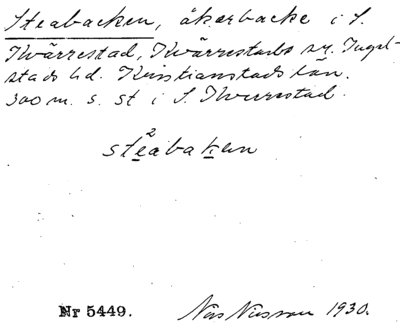 Steabacken, åkerbacke i S.
Kvärrestad, Kvärrestads sn. Ingel-
stads hd. Kristianstads län.
300 m. s. st i S. Kverrestad.
ste²abaken
Nr 5449. Nils Nilsson 1930.